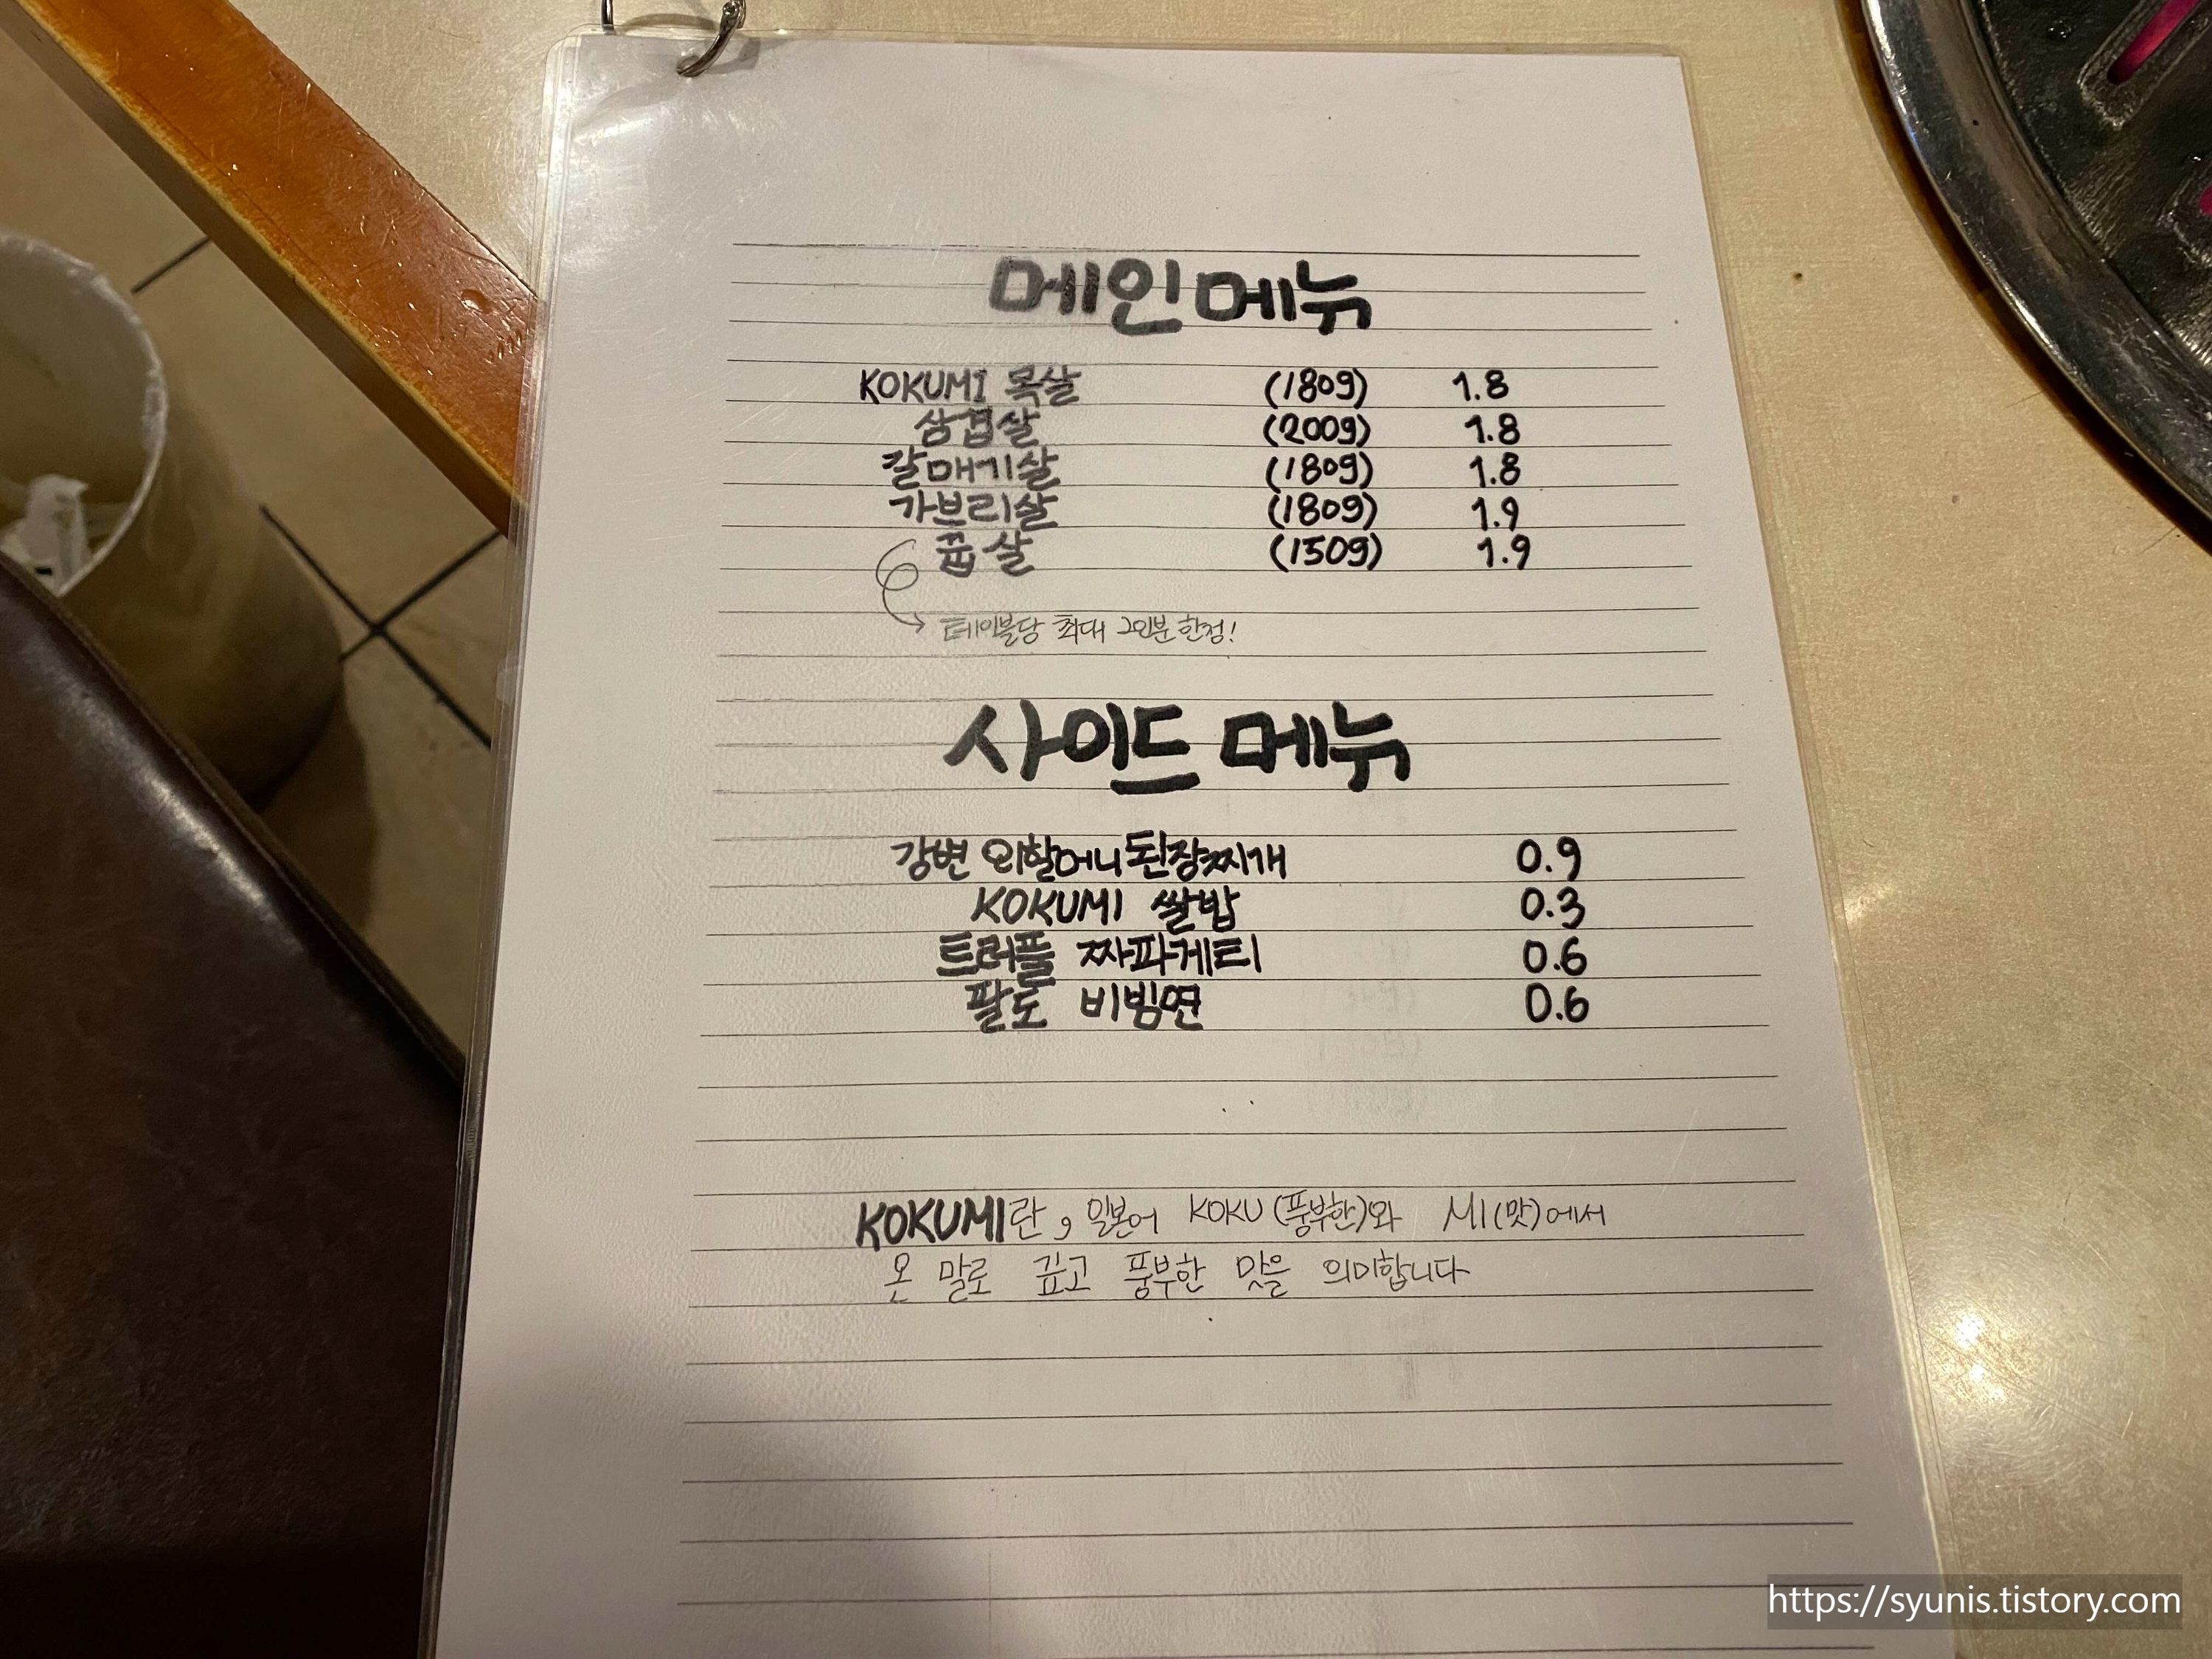 메인메뉴
KOKUMI 목살 (180g) 1.8
삼겹살 (200g) 1.8
갈매기살 (180g) 1.8
가브리살 (180g) 1.9
꼽살 (150g) 1.9
테이블당 최대 2인분 한정!
사이드 메뉴
강변 외할머니 된장찌개 0.9
KOKUMI 쌀밥 0.3
트러플 짜파게티 0.6
팔도 비빔면 0.6
KOKUMI란, 일본어 KOKU (풍부한)와 MI(맛)에서
온 말로 깊고 풍부한 맛을 의미합니다
https://syunis.tistory.com